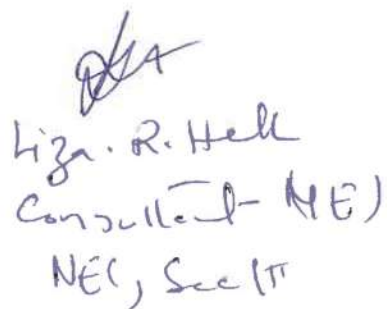 Liza. R. Hek
Consultant- ME)
NEC, Sectt